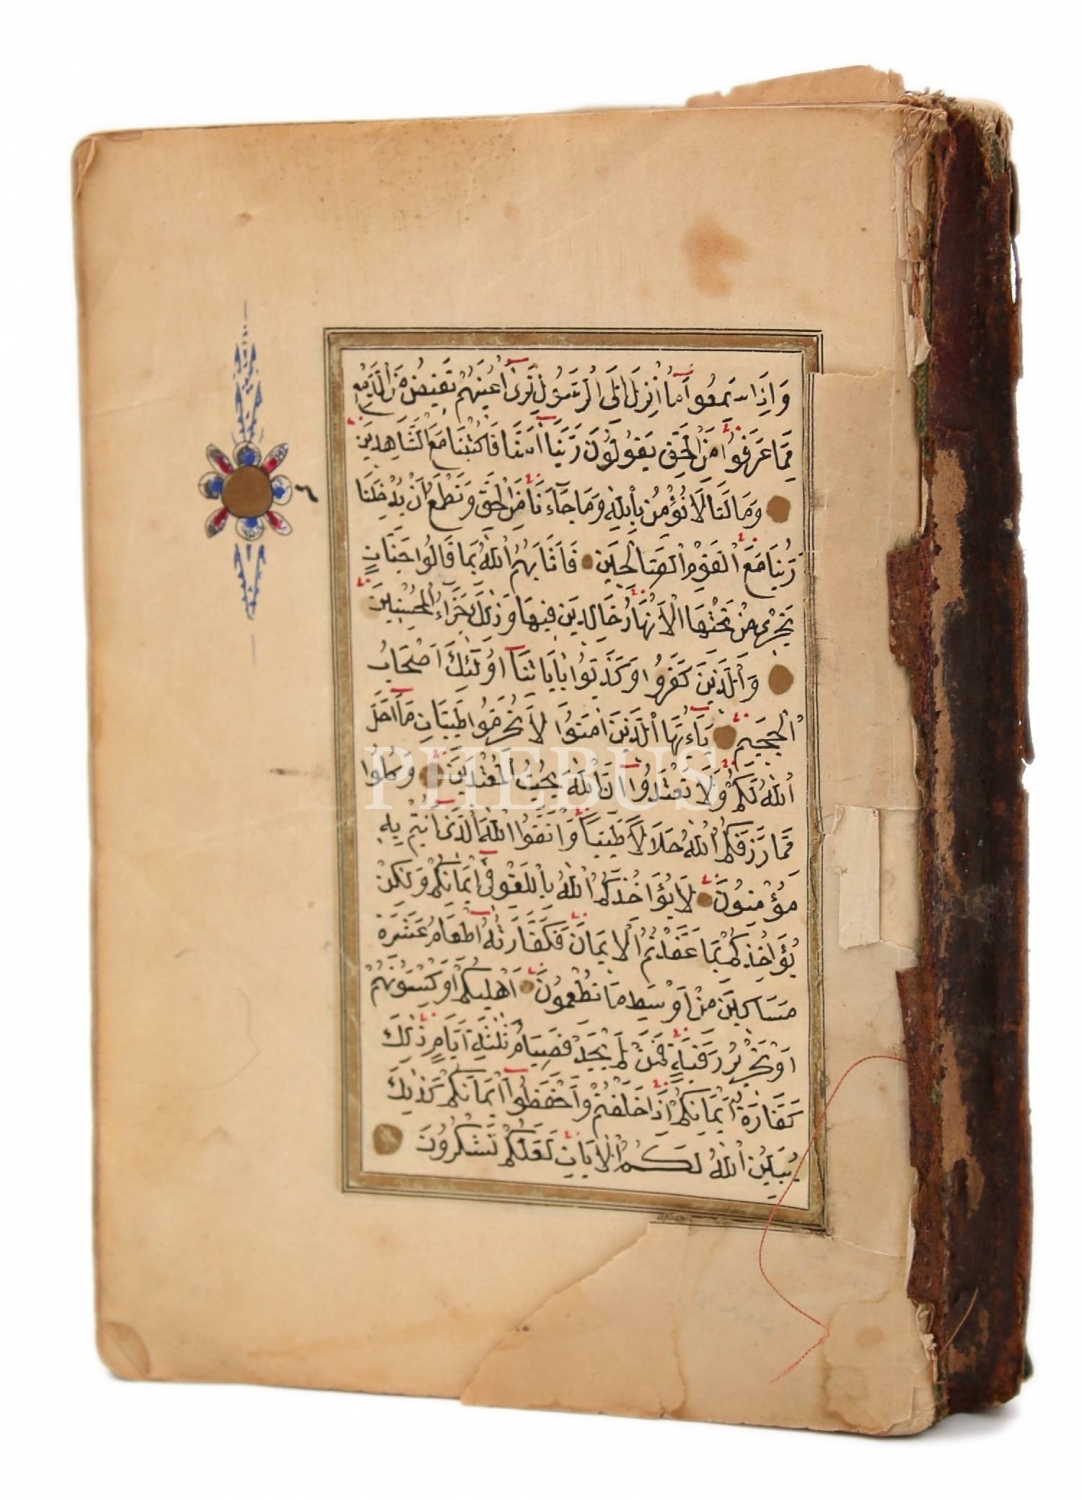 وَاِذَا سَمِعُوا مَا اُنْزِلَ اِلَى الرَّسُولِ تَرٰى اَعْيُنَهُمْ تَفِيضُ مِنَ الدَّمْعِ
مِمَّا عَرَفُوا مِنَ الْحَقِّ يَقُولُونَ رَبَّنَا اٰمَنَّا فَاكْتُبْنَا مَعَ الشَّاهِدِينَ
وَمَا لَنَا لَا نُؤْمِنُ بِاللّٰهِ وَمَا جَآءَنَا مِنَ الْحَقِّ وَنَطْمَعُ اَنْ يُدْخِلَنَا
رَبُّنَا مَعَ الْقَوْمِ الصَّالِحِينَ فَاَثَابَهُمُ اللّٰهُ بِمَا قَالُوا جَنَّاتٍ
تَجْرِى مِنْ تَحْتِهَا الْاَنْهَارُ خَالِدِينَ فِيهَا وَذٰلِكَ جَزَآءُ الْمُحْسِنِينَ
وَالَّذِينَ كَفَرُوا وَكَذَّبُوا بِاٰيَاتِنَا اُولٰئِكَ اَصْحَابُ
الْجَحِيمِ يَآءَيُّهَا الَّذِينَ اٰمَنُوا لَا تُحَرِّمُوا طَيِّبَاتِ مَا اَحَلَّ
اللّٰهُ لَكُمْ وَلَا تَعْتَدُوا اِنَّ اللّٰهَ يُحِبُّ الْمُعْتَدِينَ وَكُلُوا
مِمَّا رَزَقَكُمُ اللّٰهُ حَلَالًا طَيِّبًا وَاتَّقُوا اللّٰهَ الَّذِى اَنْتُمْ بِهِ
مُؤْمِنُونَ لَا يُؤَاخِذُكُمُ اللّٰهُ بِاللَّغْوِ فِى اَيْمَانِكُمْ وَلٰكِنْ
يُؤَاخِذُكُمْ بِمَا عَقَّدْتُمُ الْاَيْمَانَ فَكَفَّارَتُهُ اِطْعَامُ عَشَرَةِ
مَسَاكِينَ مِنْ اَوْسَطِ مَا تُطْعِمُونَ اَهْلِيكُمْ اَوْ كِسْوَتُهُمْ
اَوْ تَحْرِيرُ رَقَبَةٍ فَمَنْ لَمْ يَجِدْ فَصِيَامُ ثَلٰثَةِ اَيَّامٍ ذٰلِكَ
كَفَّارَةُ اَيْمَانِكُمْ اِذَا حَلَفْتُمْ وَاحْفَظُوا اَيْمَانَكُمْ كَذٰلِكَ
يُبَيِّنُ اللّٰهُ لَكُمُ الْاٰيَاتِ لَعَلَّكُمْ تَشْكُرُونَ
PHEBUS